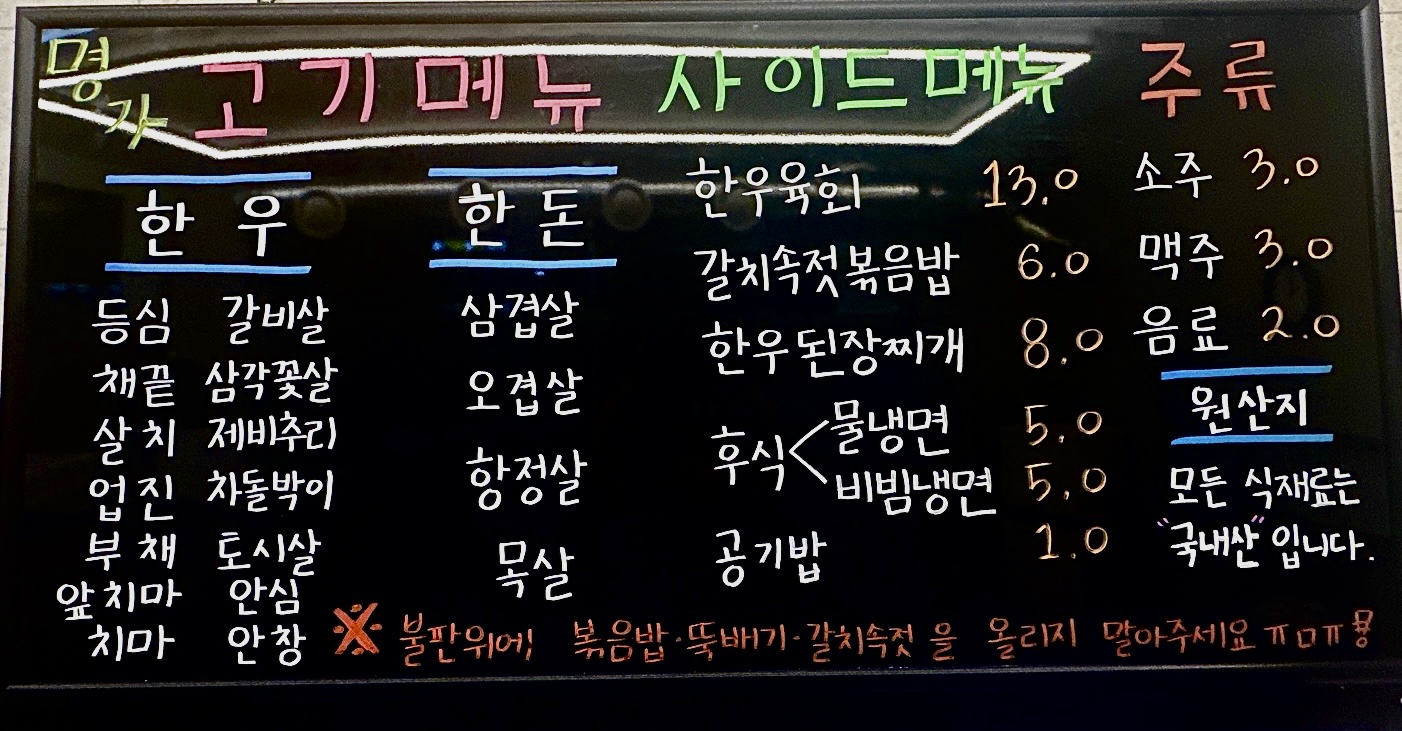 명가 고기메뉴 사이드메뉴 주류
한우
등심 갈비살
채끝 삼각꽃살
살치 제비추리
업진 차돌박이
부채 토시살
앞치마 안심
치마 안창
한돈
삼겹살
오겹살
항정살
목살
한우육회 13.0
갈치속젓볶음밥 6.0
한우된장찌개 8.0
후식 < 물냉면 5.0
비빔냉면 5.0
공기밥 1.0
소주 3.0
맥주 3.0
음료 2.0
원산지
모든 식재료는
"국내산" 입니다.
※ 불판위에! 볶음밥·뚝배기·갈치속젓 을 올리지 말아주세요 ㅠㅁㅠ